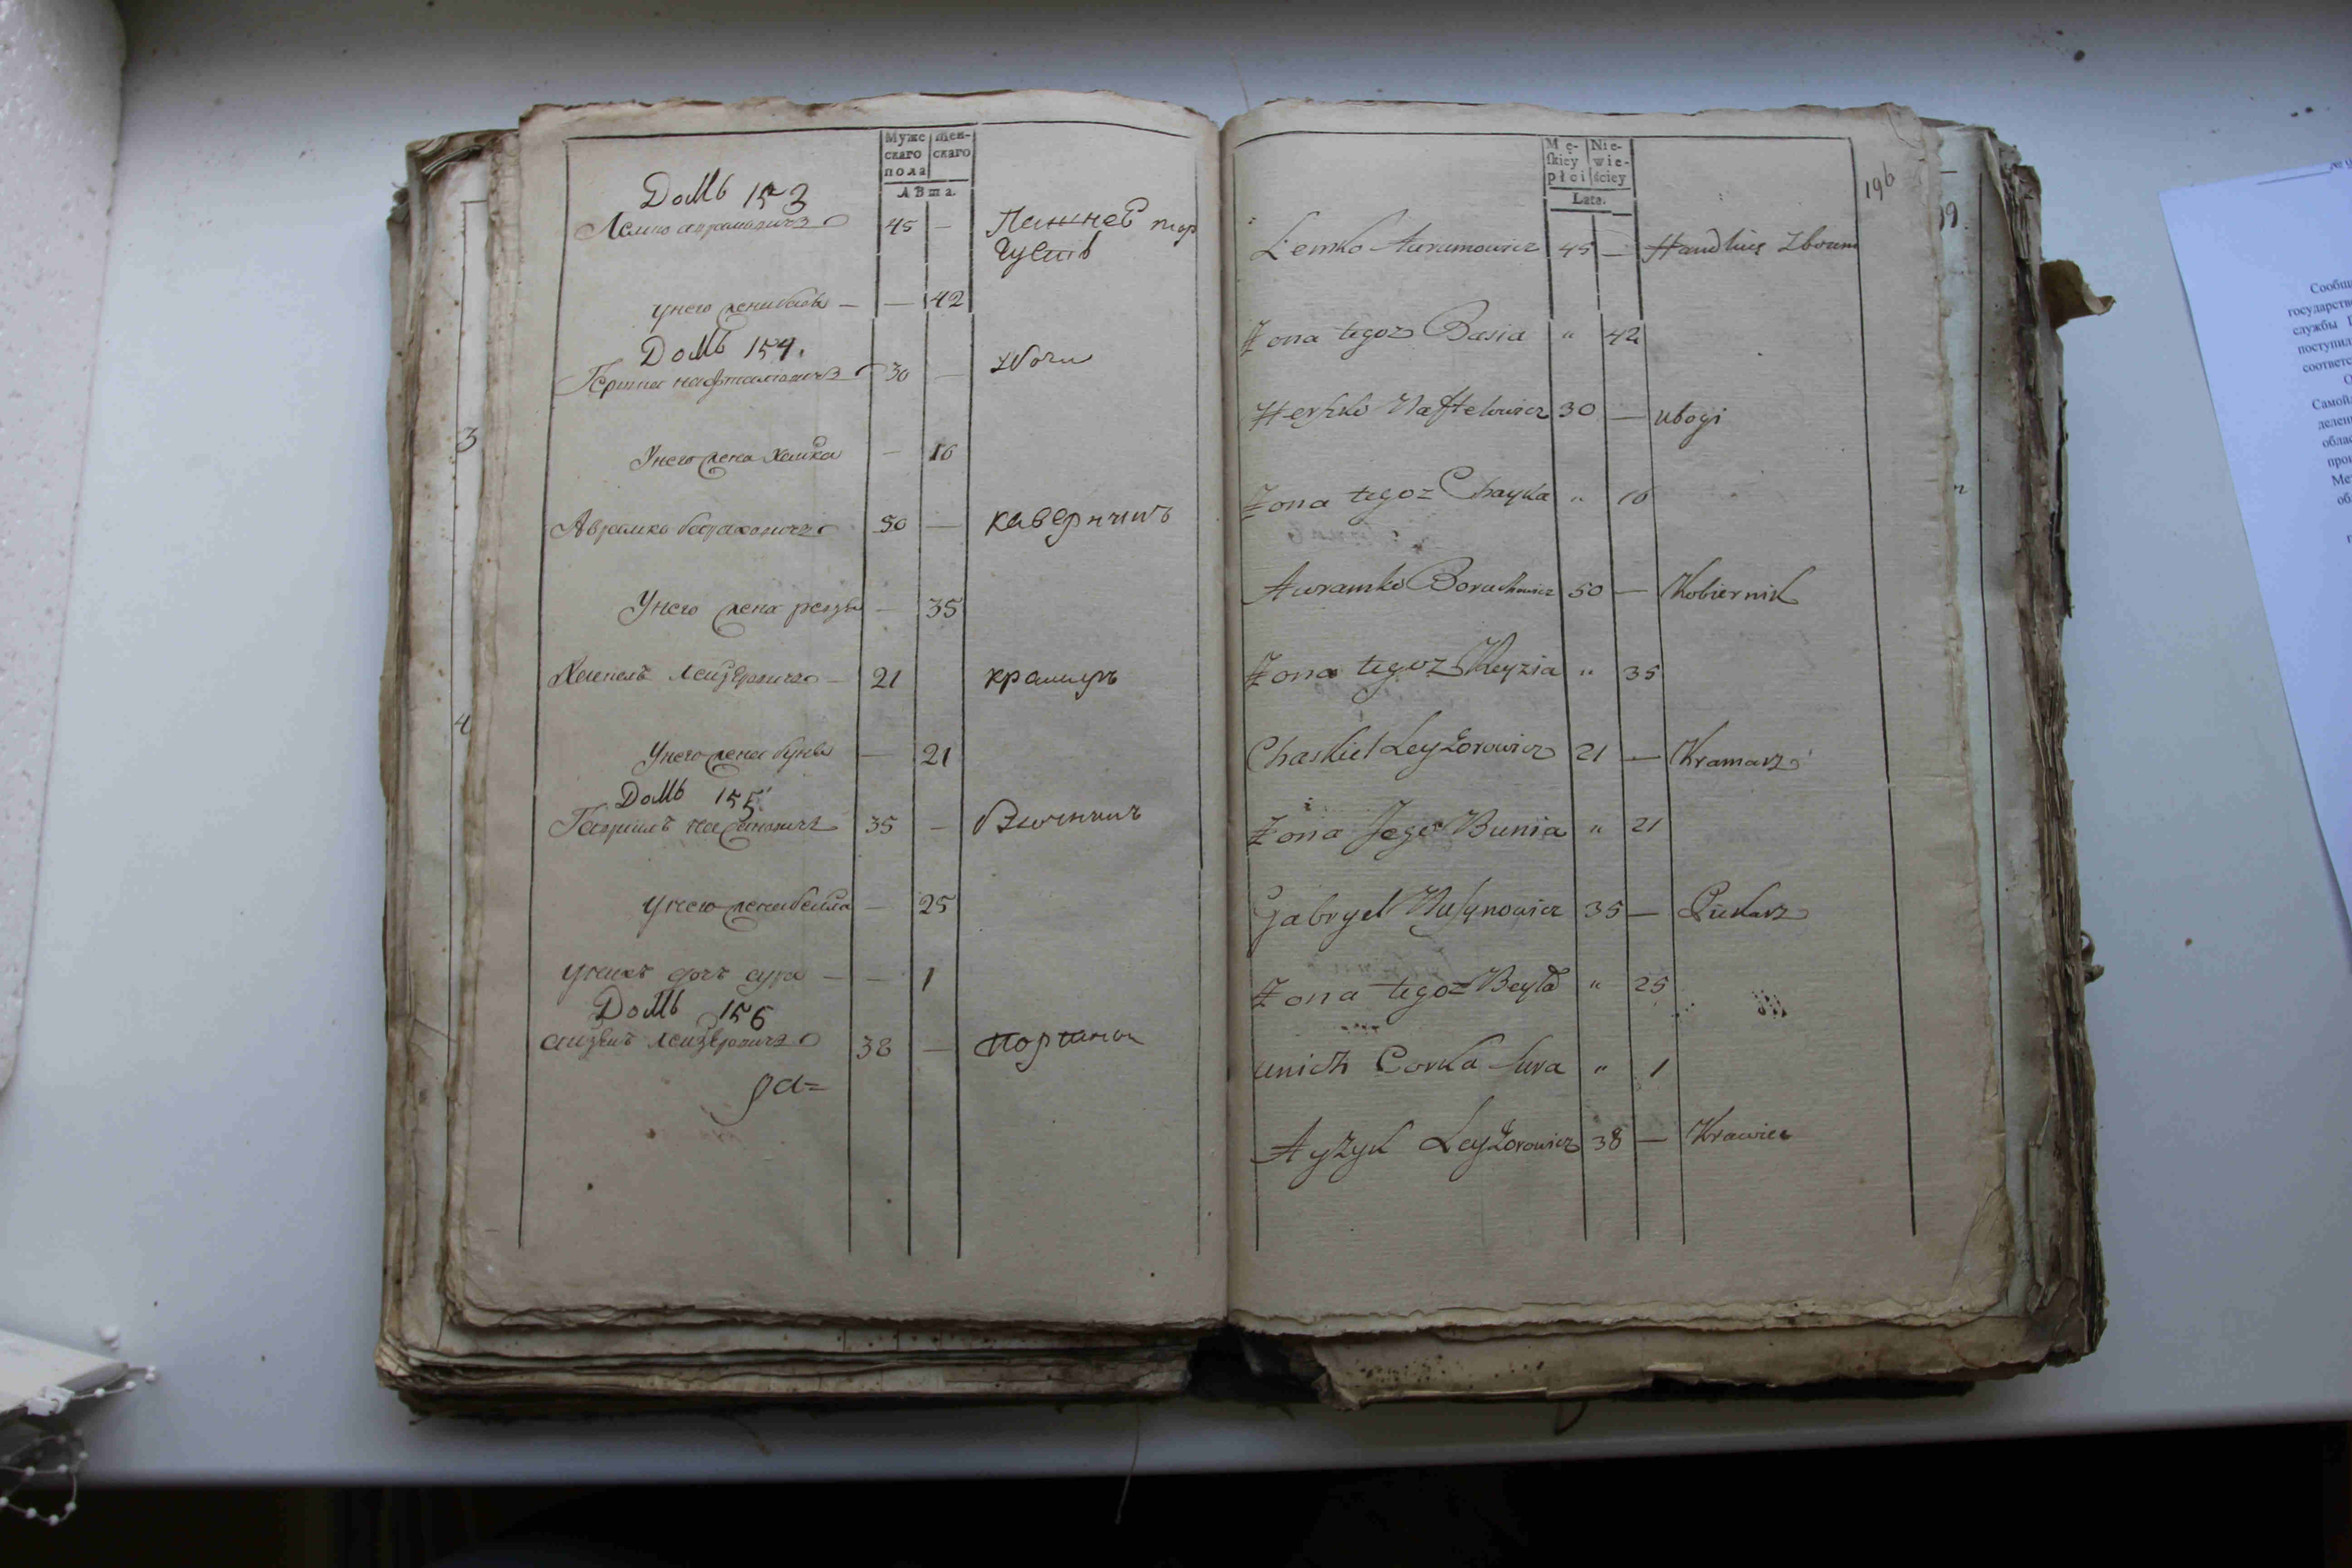 Муже
скаго
пола
Жен-
скаго
лѣта.
Домъ 153
Лемко аврамовичъ 45 —
унего жена бася — — 42
Домъ 154.
Гершка нафталовичъ 30 — убоги
Унего жена хайка — 16
Аврамко борахович 50 —
Унего жена рейзя — 35
Хаскель лейзеровичъ — 21 крамаръ
Унего жена буня — 21
Домъ 155
Гаврыилъ 35 —
унего жена бейла — 25
унихъ дочь сура — — 1
Домъ 156
айзыкъ лейзеровичъ 38 — портной
3
4
Mę-
skiey
płci
Nie-
wie-
ściey
Lata.
196
Lemko Auramowicz 45 — Handluie Zbożem
Zona tegoz Basia " 42
Herszko Naftelowicz 30 — ubogi
Zona tegoz Chayka " 16
Auramko Boruchowicz 50 — Kobiernik
Zona tegoz Reyzia " 35
Chaskiel Leyzorowicz 21 — Kramarz
Zona Jego Bunia " 21
Gabryel 35 — Piekarz
Zona tegoz Beyla " 25
unich Corka Sura " 1
Ayzyk Leyzorowicz 38 — Krawiec